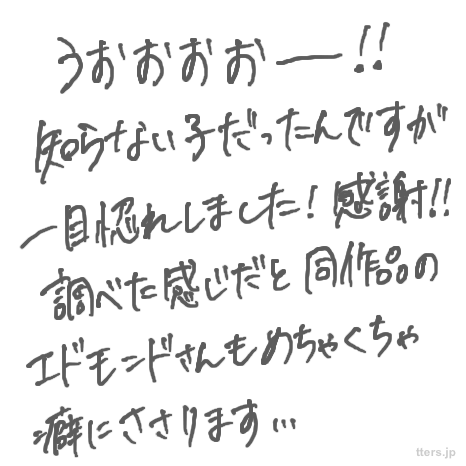 うおおおおー!!
知らない子だったんですが
一目惚れしました!感謝!!
調べた感じだと同作品の
エドモンドさんもめちゃくちゃ
癖にささります…
tters.jp